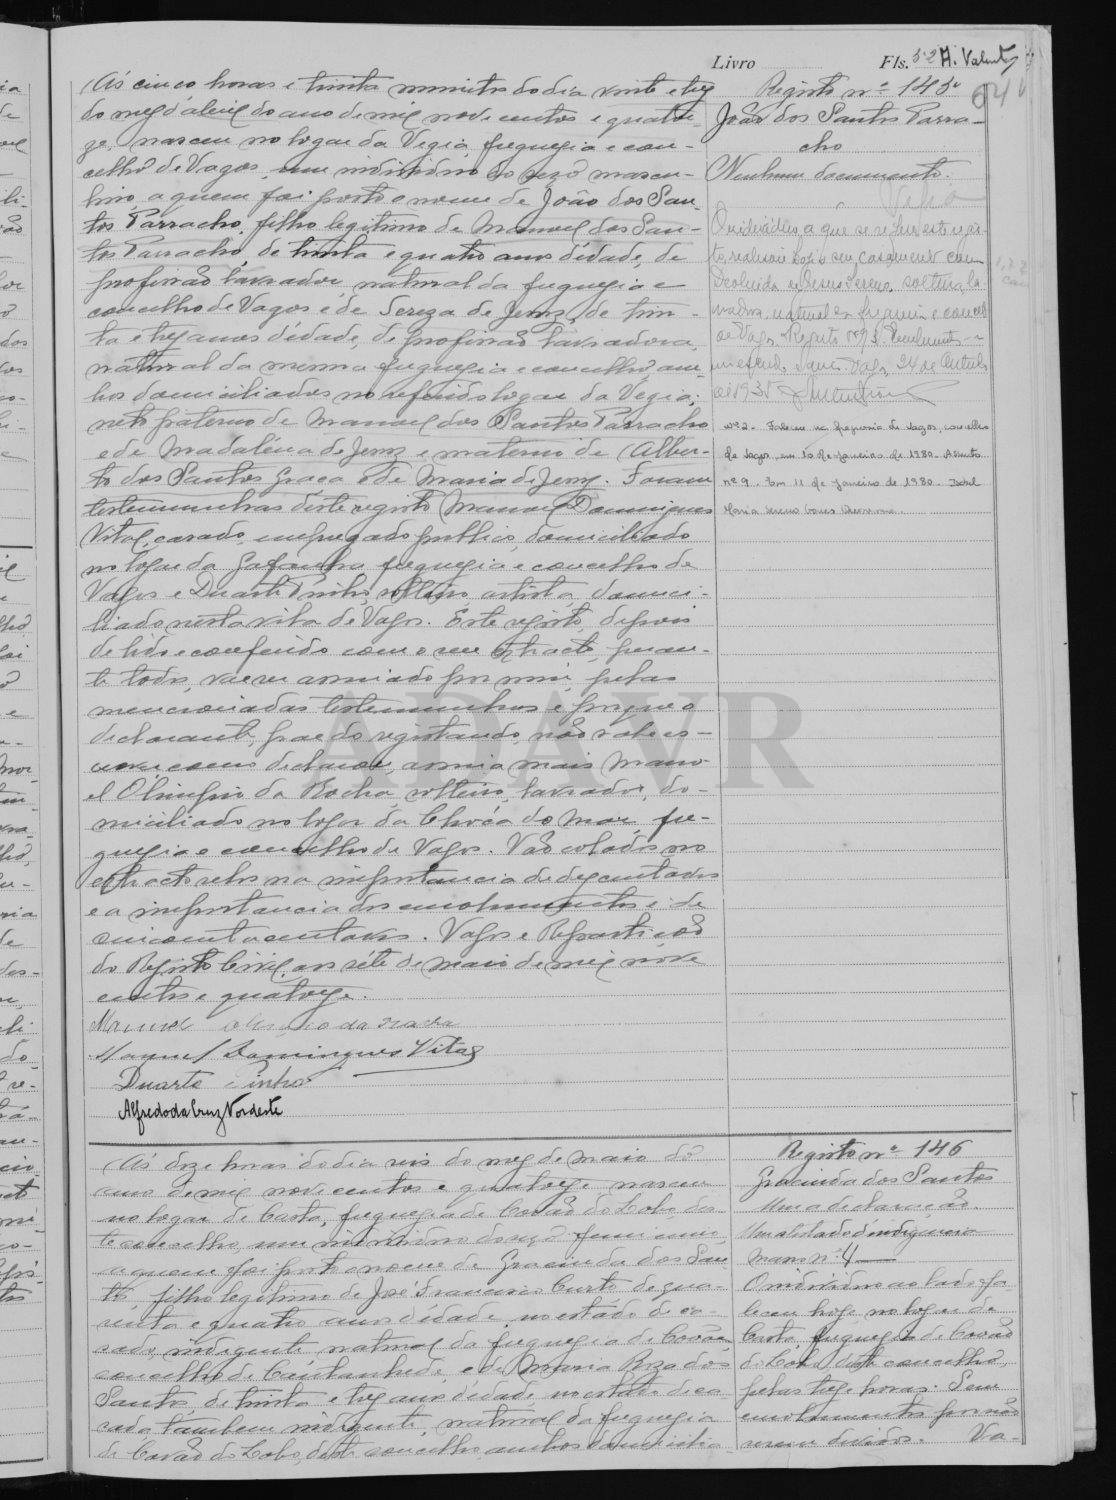 Livro Fls. 52 A. Valente
Registo nº 145
João dos Santos Parra-
cho
Nenhum documento.
O individuo a que se refere este regis-
to, realisou hoje o seu casamento com
de Jesus Sereno, solteira, la-
vradora, natural da freguesia e concelho
de Vagos. Registo nº 93.
Vagos, 24 de Outubro
de 193
Nº 2 - Faleceu na freguesia de Vagos, concelho
de Vagos, em 10 de Janeiro de 1980. Assento
nº 9. Em 11 de Janeiro de 1980. Isabel
Maria
Ás cinco horas e trinta minutos do dia vinte e tres
do mez d'abril do ano de mil nove centos e quator-
ze, nasceu no logar da Vegia, freguezia e con-
celho de Vagos, um individuo do sexo mascu-
lino, a quem foi posto o nome de João dos San-
tos Parracho, filho legitimo de Manuel dos San-
tos Parracho, de trinta e quatro anos d'edade, de
profissão lavrador, natural da freguezia e
concelho de Vagos e de Sereza de Jesus, de trin-
ta e tres anos d'edade, de profissão lavradora,
natural da mesma freguezia e concelho, am-
bos domiciliados no referido logar da Vegia;
neto paterno de Manuel dos Santos Parracho
e de Madalena de Jesus e materno de Alber-
to dos Santos Graça e de Maria de Jesus. Foram
testemunhas d'este registo Manuel Domingues
Vital, casado, empregado publico, domiciliado
no logar da Gafanha, freguezia e concelho de
Vagos e Duarte Pinho, solteiro, artista, domici-
liado nesta vila de Vagos. Este registo, depois
de lido e conferido com o seu extracto, peran-
te todos, vae ser assinado por mim, pelas
mencionadas testemunhas e porque o
declarante, pae do registando, não sabe es-
crever como declarou, assina mais Manu-
el Olimpio da Rocha, solteiro, lavrador, do-
miciliado no logar da Choca do Mar, fre-
guezia e concelho de Vagos. Vão colados no
extracto selos na importancia de dez centavos
e a importancia dos emolumentos é de
cincoenta centavos. Vagos e Repartição
do Registo Civil, aos sete de maio de mil nove
centos e quatorze.
Manuel Olimpio da Rocha
Manuel Domingues Vital
Duarte Pinho
Alfredo da Cruz Nordeste
ADAVR
Registo nº 146
Gracinda dos Santos
Uma declaração.
Um atestado d'indigencia
Maço nº 4
O individuo ao lado fa-
leceu hoje no logar de
Costa, freguezia de Covão
do Lobo, deste concelho,
pelas treze horas. Sem
emolumentos por não
serem devidos. Va-
Ás doze horas do dia seis do mez de maio do
ano de mil nove centos e quatorze, nasceu
no logar de Costa, freguezia de Covão do Lobo, des-
te concelho, um individuo do sexo feminino,
a quem foi posto o nome de Gracinda dos San-
tos, filha legitima de José Francisco Curto de qua-
renta e quatro anos d'edade, no estado de ca-
sado, indigente, natural da freguezia de Covões,
concelho de Cantanhede, e de Maria Roza dos
Santos, de trinta e tres anos d'edade, no estado de ca-
sada, tambem indigente, natural da freguezia
de Covão do Lobo, deste concelho, ambos domicilia-